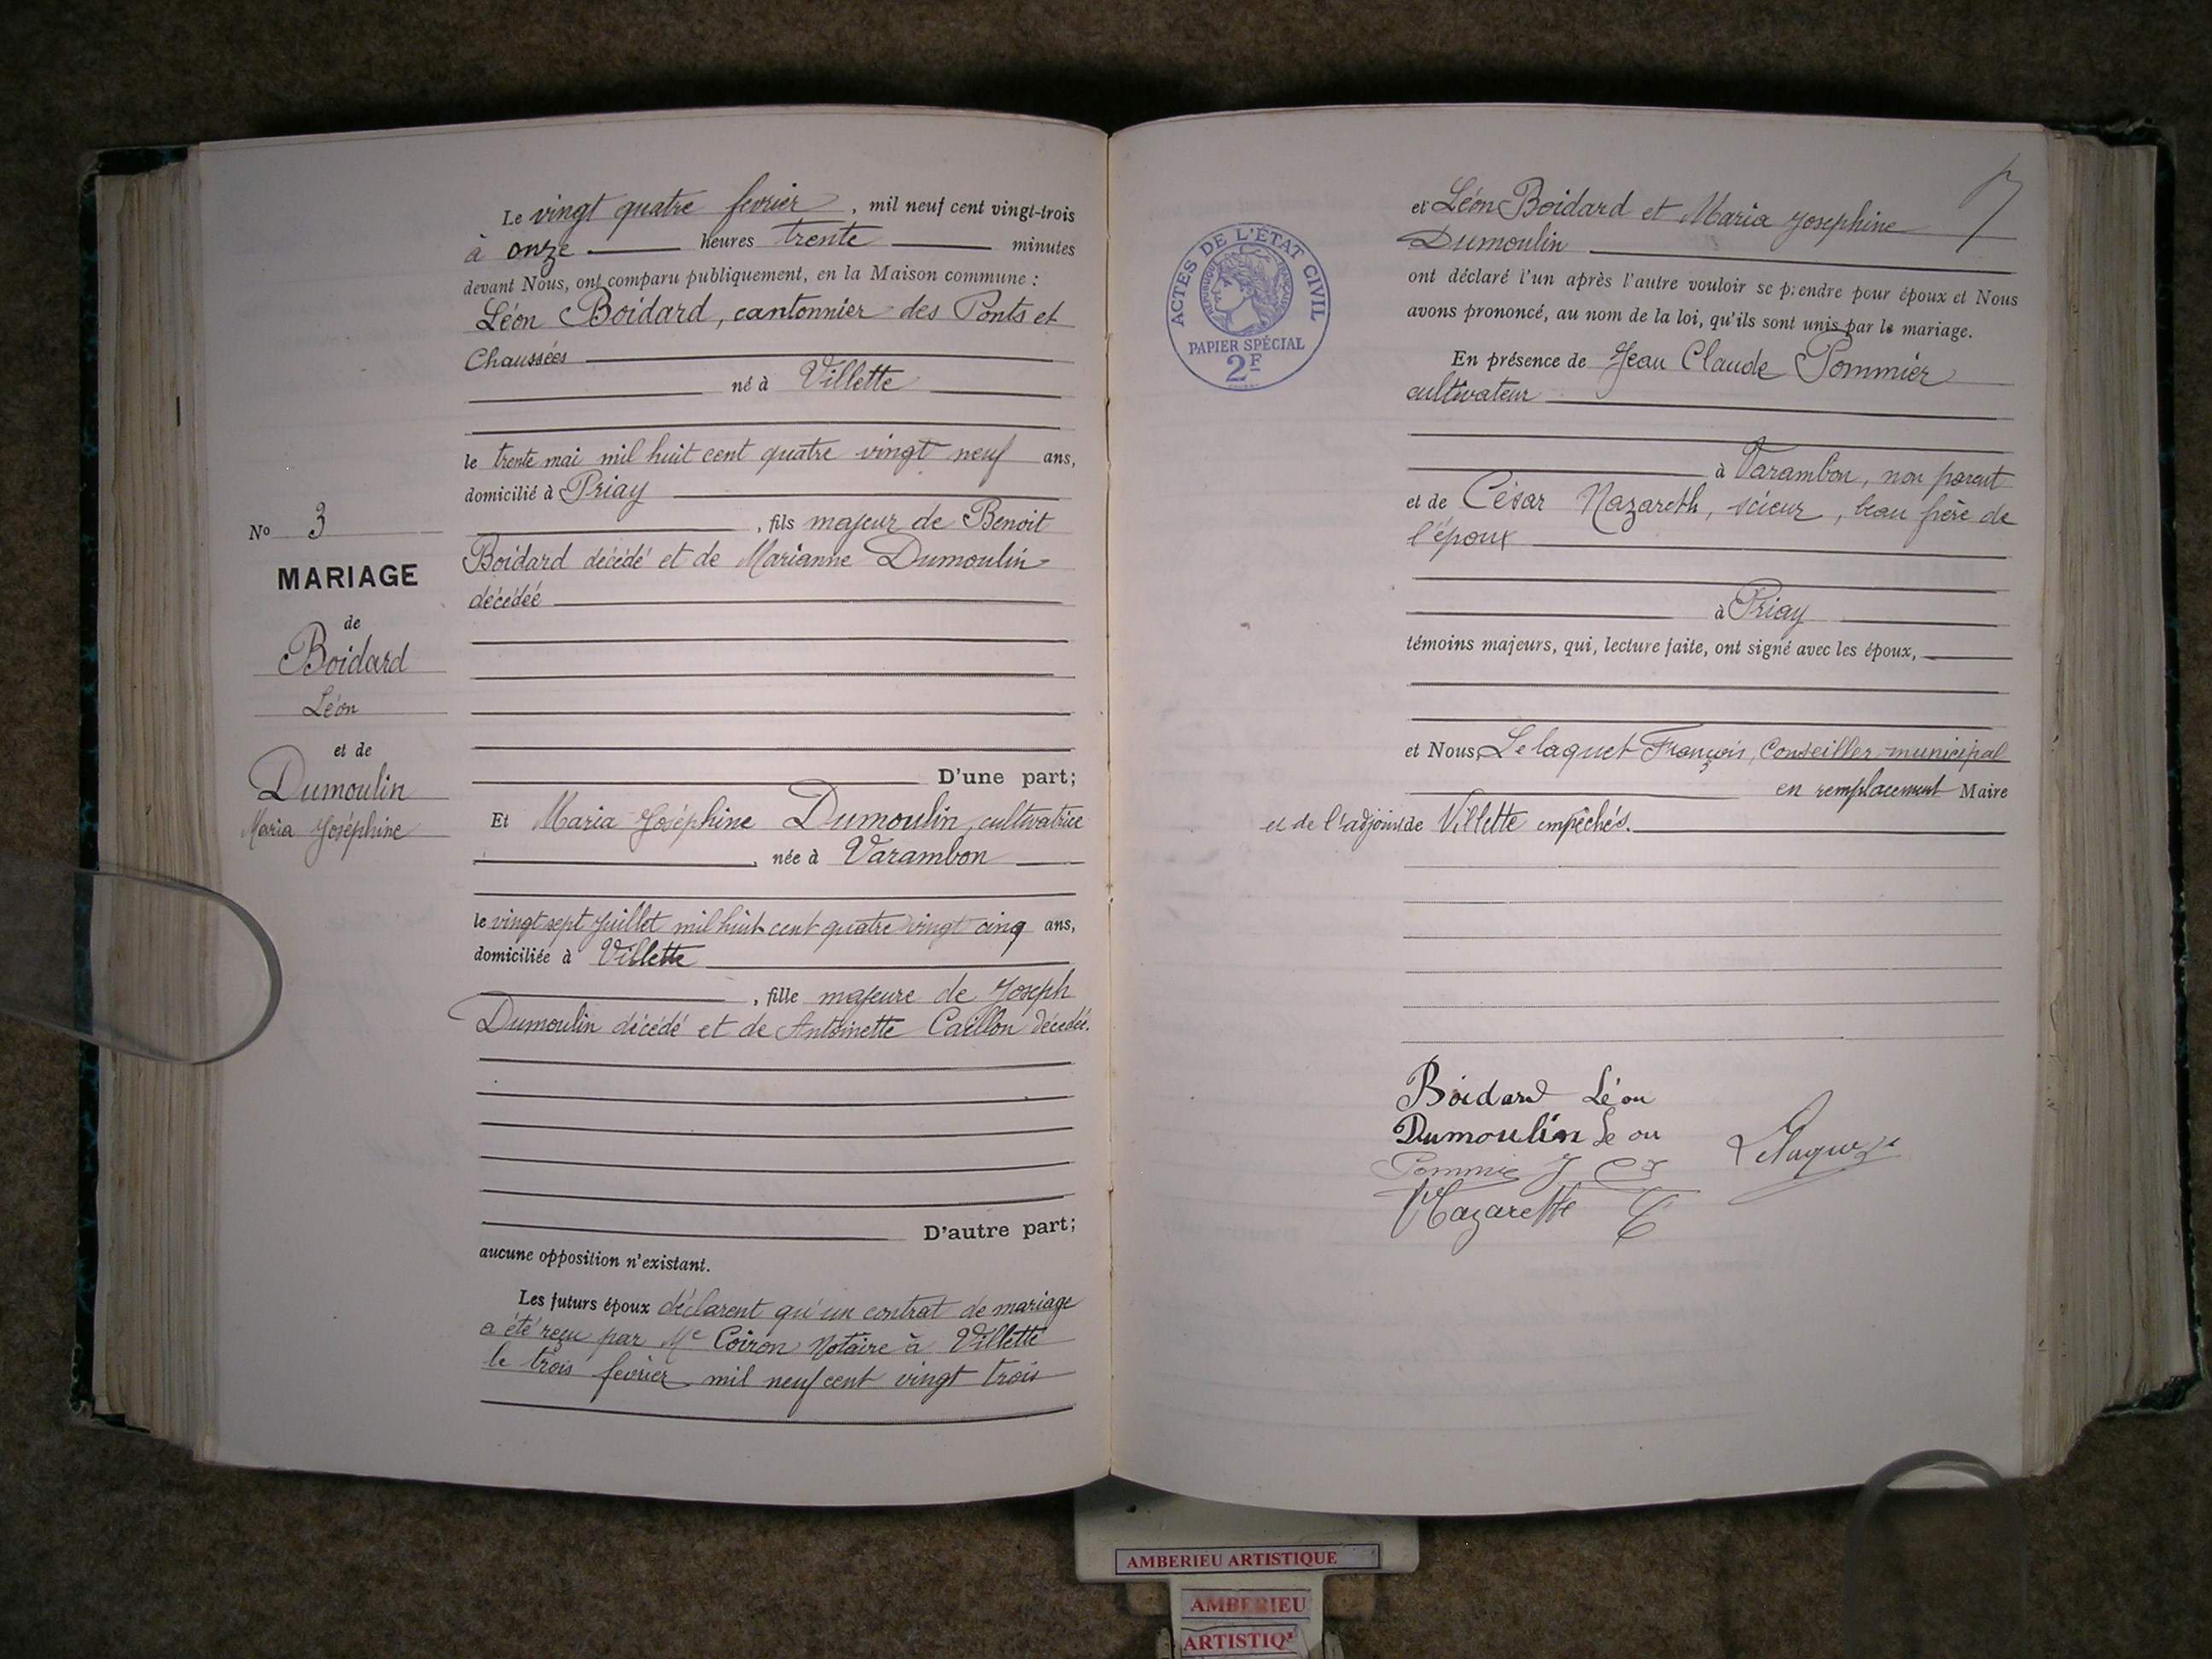 Le vingt quatre fevrier, mil neuf cent vingt-trois
à onze heures trente minutes
devant Nous, ont comparu publiquement, en la Maison commune :
Léon Boidard, cantonnier des Ponts et
Chaussées
né à Villette
le trente mai mil huit cent quatre vingt neuf ans,
domicilié à Priay
, fils majeur de Benoit
Boidard décédé et de Marianne Dumoulin
décédée
D'une part;
Et Maria Joséphine Dumoulin, cultivatrice
, née à Varambon
le vingt sept Juillet mil huit cent quatre vingt cinq ans,
domiciliée à Villette
, fille majeure de Joseph
Dumoulin décédé et de Antoinette Caillon décedée.
D'autre part;
aucune opposition n'existant.
Les futurs époux déclarent qu'un contrat de mariage
a été reçu par Me Coiron Notaire à Villette
le trois fevrier mil neuf cent vingt trois
No 3
MARIAGE
de
Boidard
Léon
et de
Dumoulin
Maria Joséphine
7
et Léon Boidard et Maria Josephine
Dumoulin
ont déclaré l'un après l'autre vouloir se prendre pour époux et Nous
avons prononcé, au nom de la loi, qu'ils sont unis par le mariage.
En présence de Jean Claude Pommier
cultivateur
à Varambon, non parent
et de César Nazareth, scieur, beau frère de
l'époux
à Priay
témoins majeurs, qui, lecture faite, ont signé avec les époux,
et Nous, Lelaquet François, Conseiller municipal
en remplacement Maire
et de l'adjoint de Villette empêchés.
Boidard Léon
Dumoulin
Pommie J C
Nazareth C
Lelaquet
ACTES DE L'ÉTAT CIVIL
RÉPUBLIQUE FRANÇAISE
PAPIER SPÉCIAL
2F
AMBERIEU ARTISTIQUE
AMBERIEU
ARTISTIQ